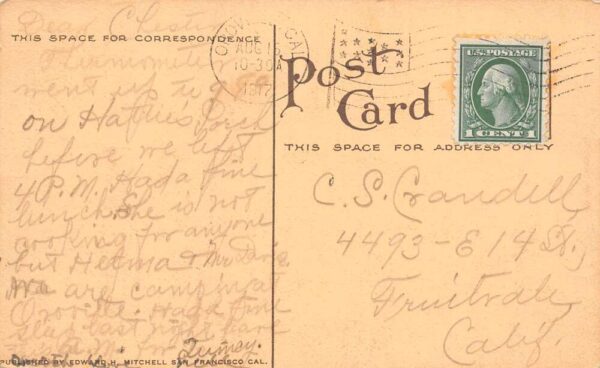 Dear
THIS SPACE FOR CORRESPONDENCE
Thermometer
went up to
on Hattie's Porch
before we left
4 P.M. Had a fine
lunch. She is not
cooking for anyone
but Herma & Mr
We are camping at
Oroville. Had a fine
last night have
PUBLISHED BY EDWARD H. MITCHELL SAN FRANCISCO CAL.
CAL.
AUG 15
10-30A
1917
Post
Card
U.S. POSTAGE
1 CENT 1
THIS SPACE FOR ADDRESS ONLY
C. S. Crandell
4493 - E 14 St,
Fruitvale
Calif.